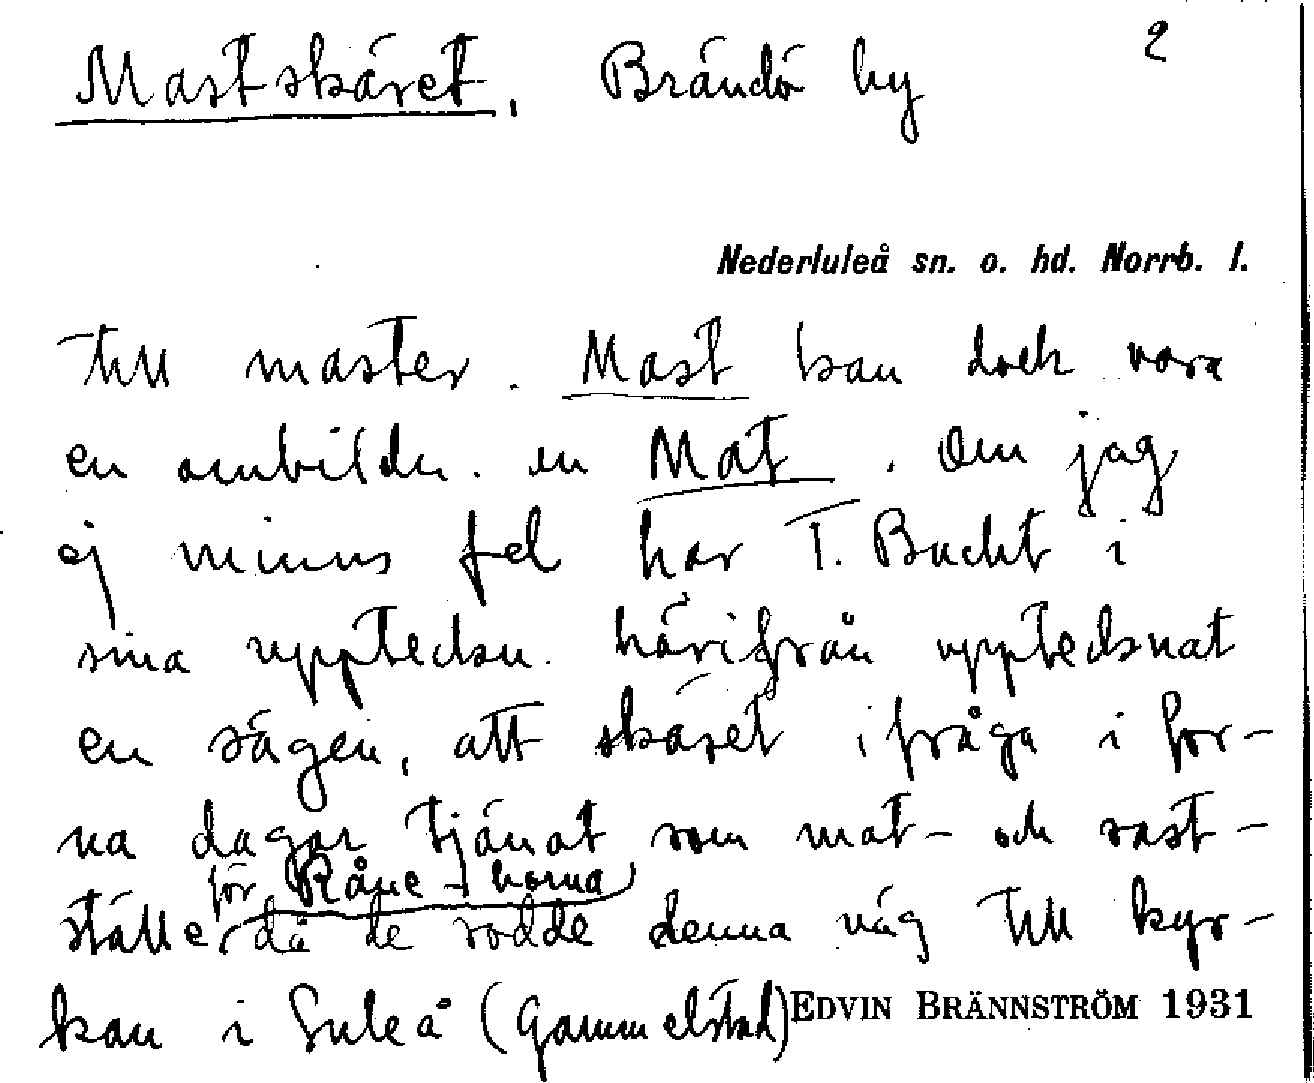 Mastskäret, Brändö by 2
Nederluleå sn. o. hd. Norrb. l.
till master. Mast kan dock vara
en ombildn. en Mat. Om jag
ej minns fel har T. Bucht i
sina uppteckn. härifrån upptecknat
en sägen, att skäret i fråga i for-
na dagar tjänat som mat- och rast-
för Råne-
ställe, då de rodde denna väg till kyr-
kan i Luleå (Gammelstad)
EDVIN BRÄNNSTRÖM 1931